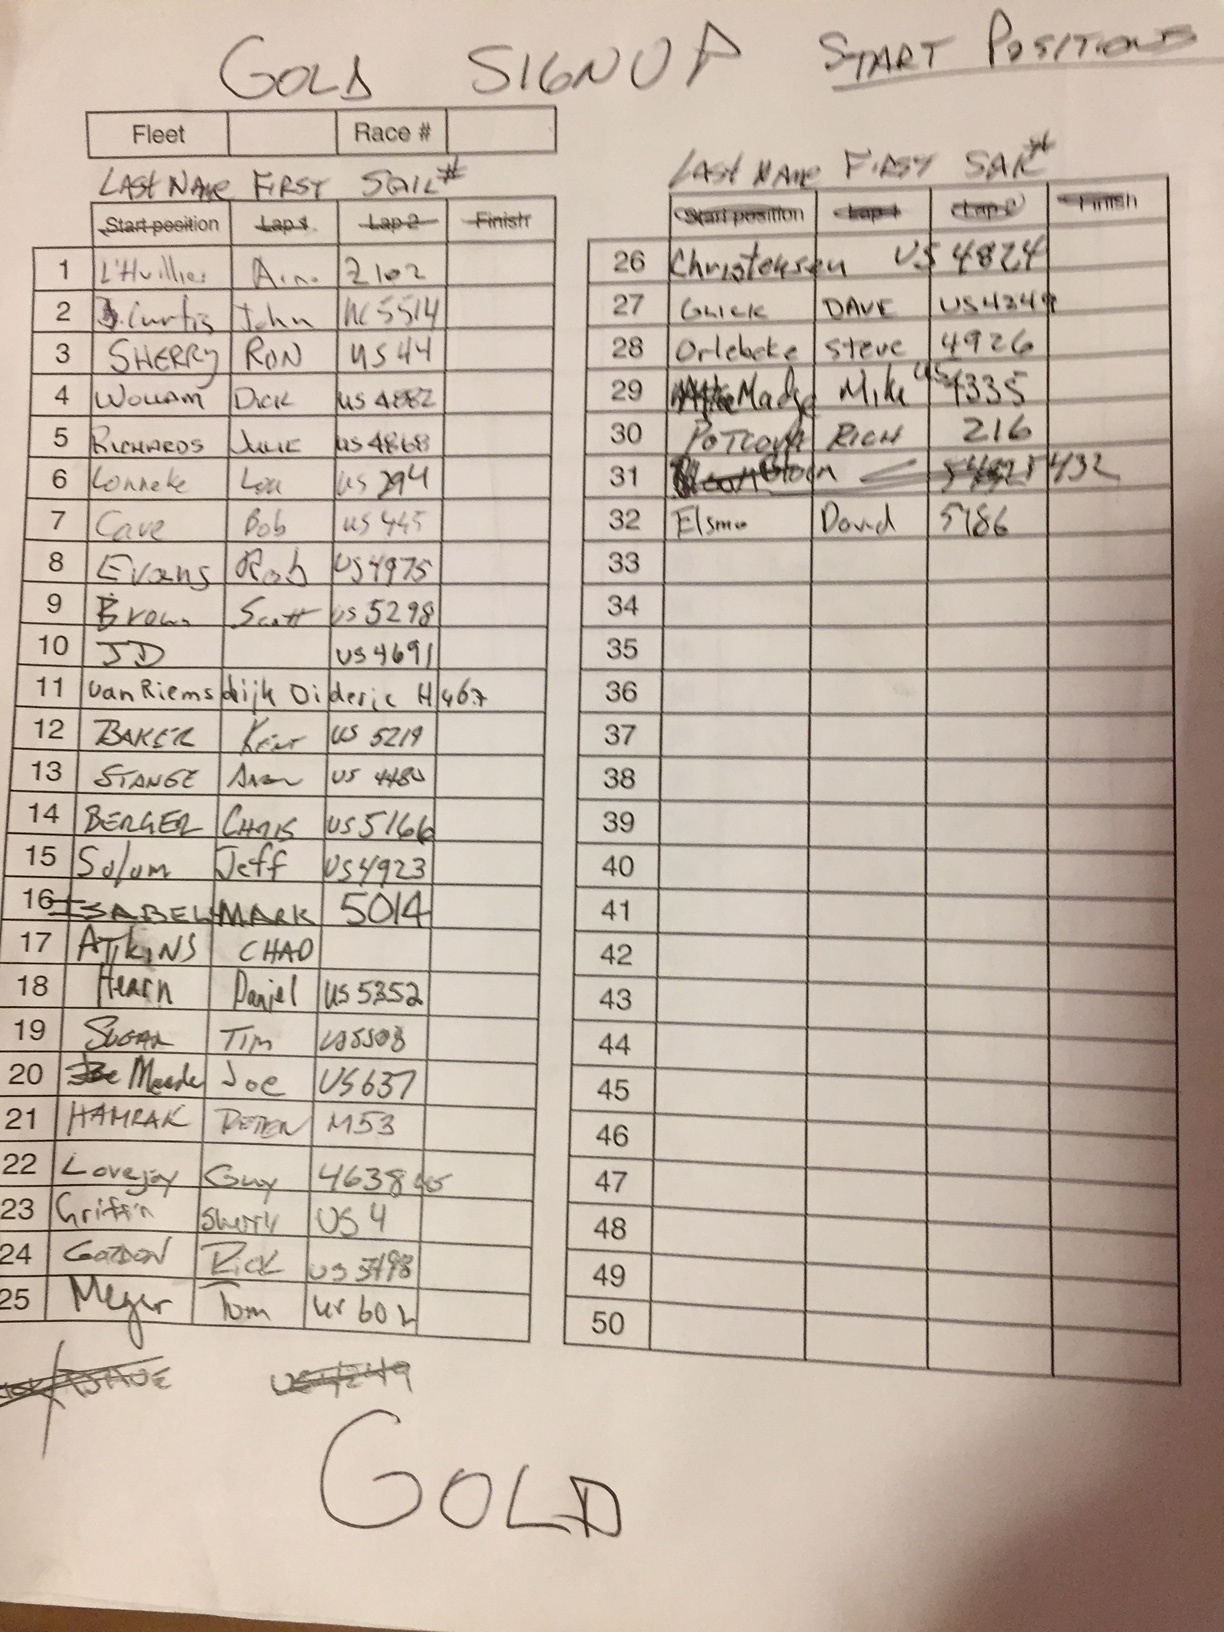 GOLD SIGNUP START POSITIONS
Fleet Race #
LAST NAME FIRST SAIL#
Start position Lap 1 Lap 2 Finish
1 L'Huillier 2102
2 Curtis John KC 5514
3 SHERRY RON US 44
4 WOLLAM DICK US 4882
5 RICHARDS JULIE US 4868
6 Lonneke Lou US 294
7 Cave Bob US 445
8 Evans Rob US 4975
9 Brown Scott US 5298
10 JD US 4691
11 van Riemsdijk Dideric H 467
12 BAKER Kent US 5219
13 STANGE US 4480
14 BERGER CHRIS US 5166
15 Solum Jeff US 4923
16 ISABELL MARK 5014
17 ATKINS CHAD
18 Hearn Daniel US 5352
19 TIM
20 Meade Joe US 637
21 HAMRAK PETER M53
22 Lovejoy Guy 4638 US
23 Griffin Sherry US 4
24 GORDON RICK US 5498
25 Meyer Tom
US 4249
GOLD
LAST NAME FIRST SAIL#
Start position Lap 1 Lap 2 Finish
26 Christensen US 4824
27 GLICK DAVE US 4249
28 Orlebeke Steve 4926
29 Madge Mike US 4335
30 POTCOVA RICH 216
31 432
32 David 5786
33
34
35
36
37
38
39
40
41
42
43
44
45
46
47
48
49
50